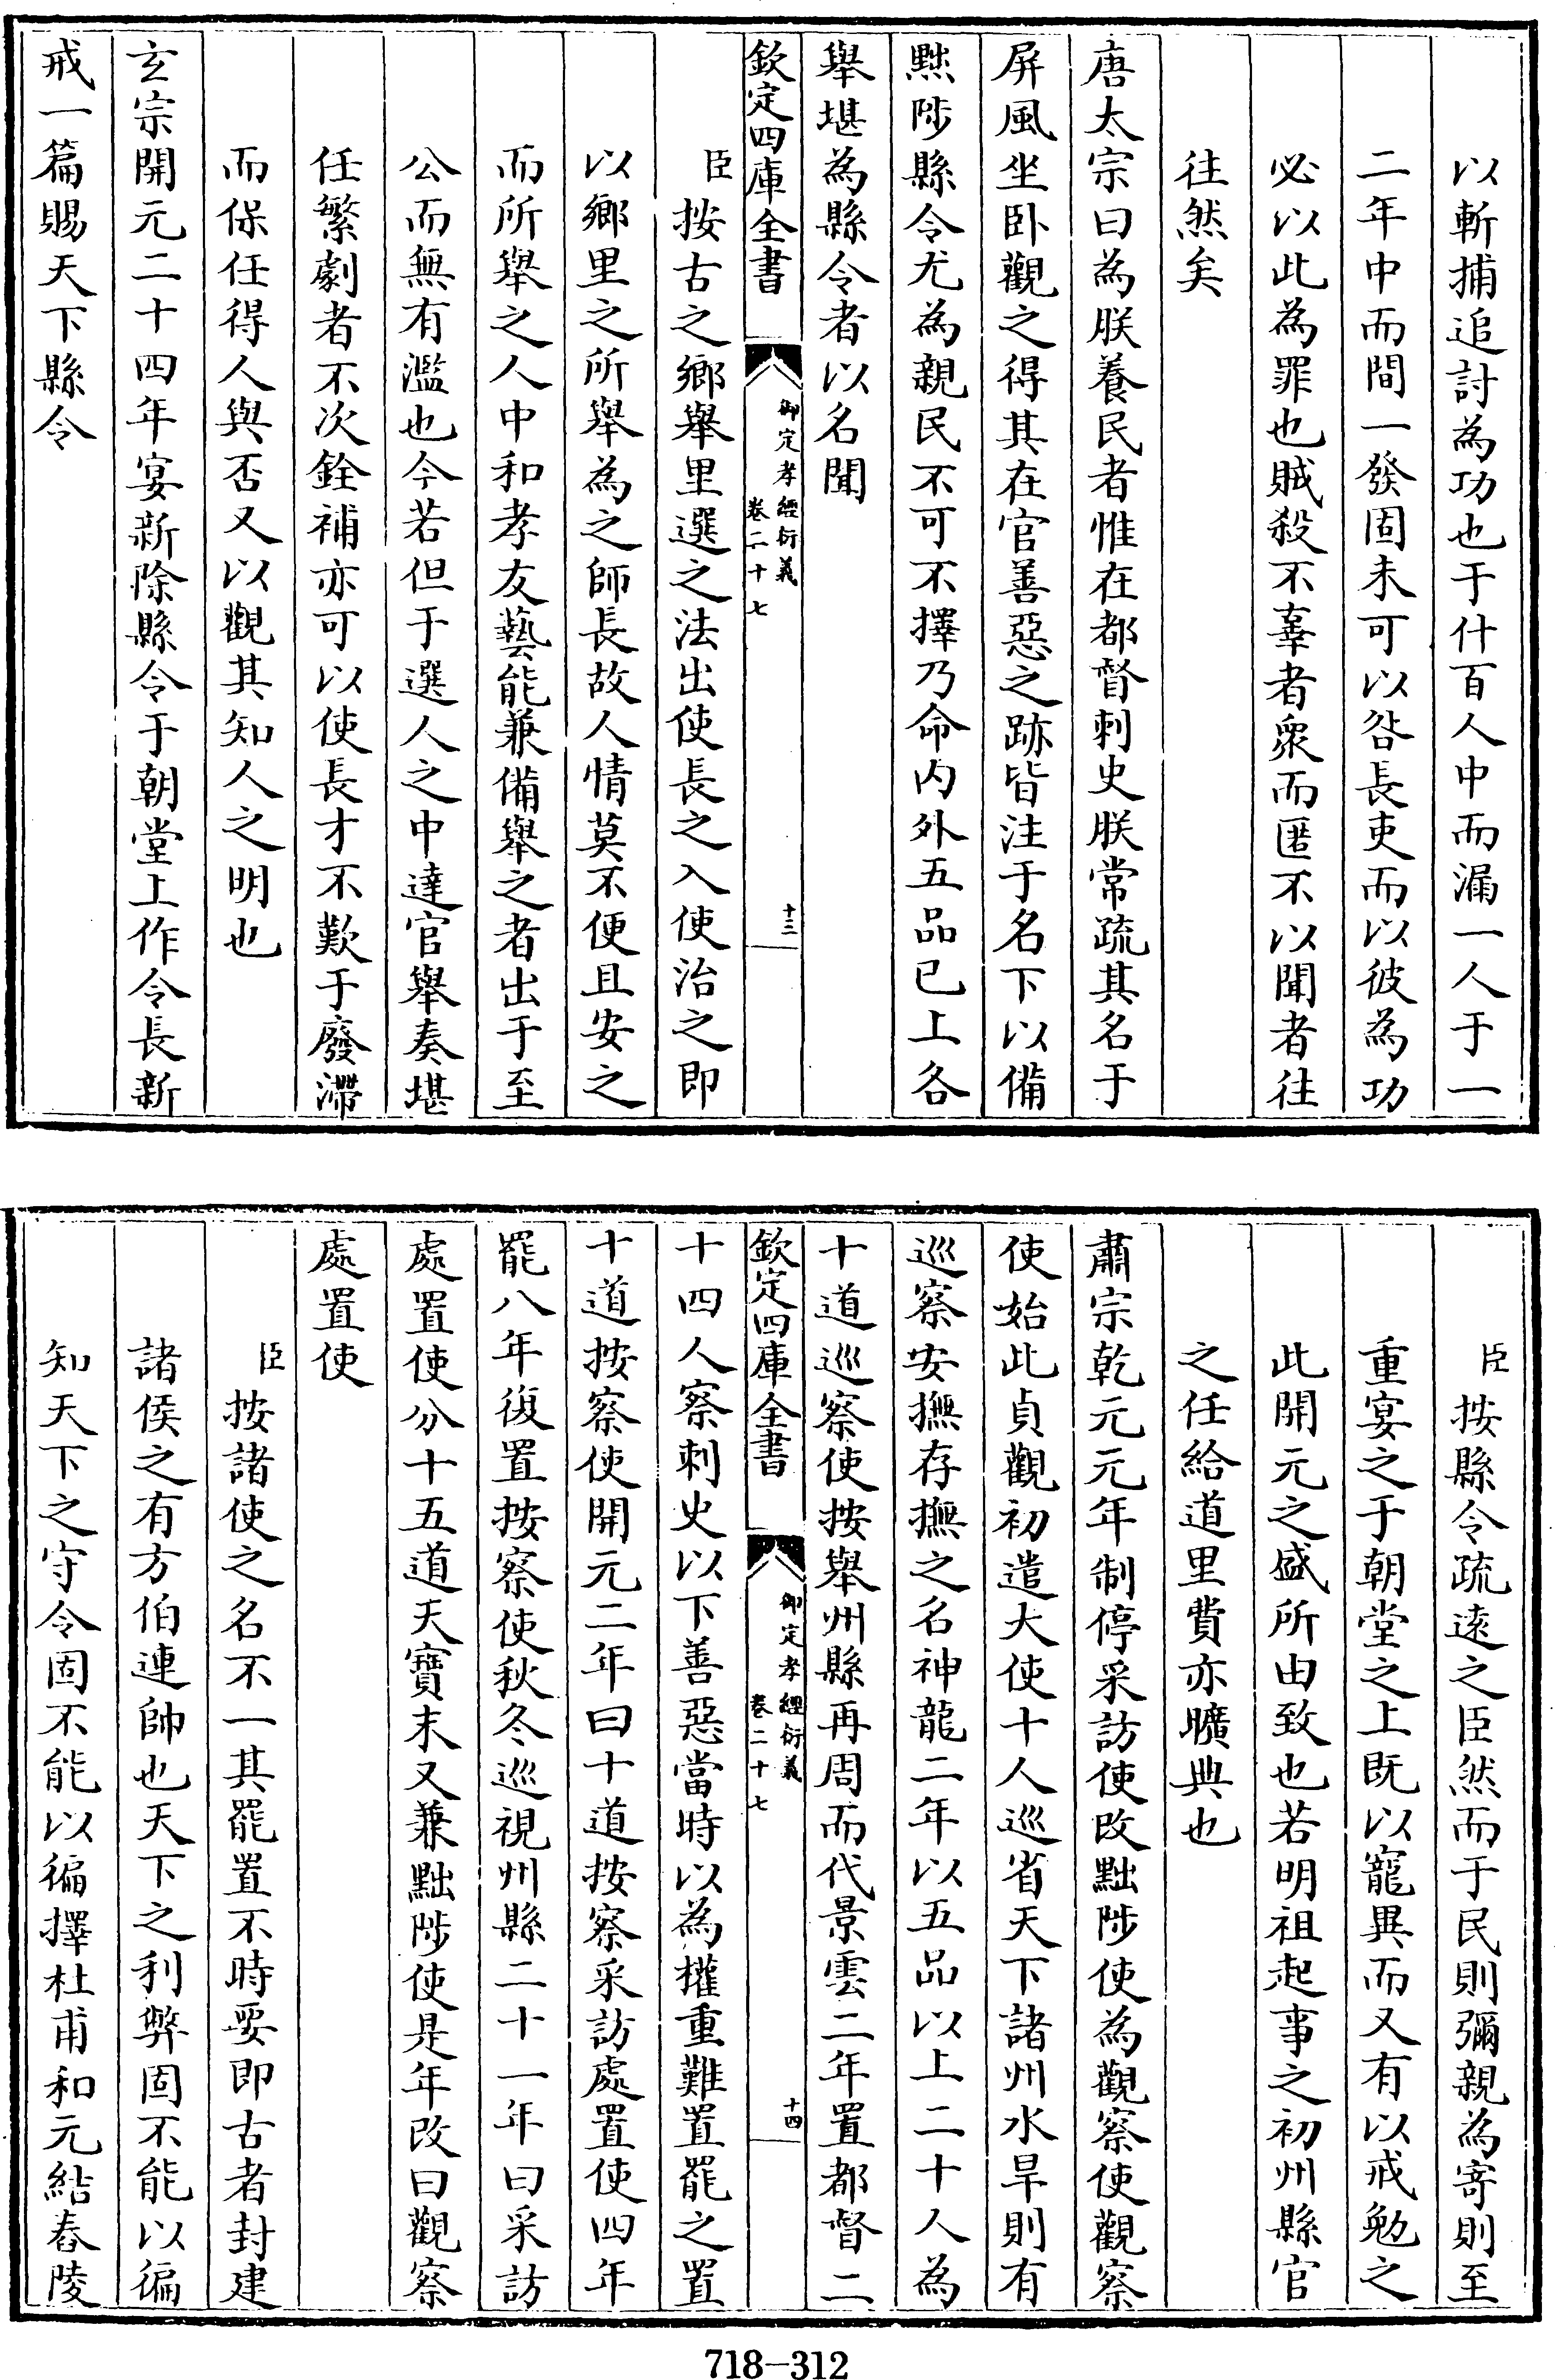 以斬捕追討為功也于什百人中而漏一人于一
二年中而間一發固未可以咎長吏而以彼為功
必以此為罪也賊殺不辜者衆而匿不以聞者往
往然矣
唐太宗曰為朕養民者惟在都督刺史朕常疏其名于
屏風坐卧觀之得其在官善惡之跡皆注于名下以備
黜陟縣令尤為親民不可不擇乃命内外五品已上各
舉堪為縣令者以名聞
欽定四庫全書
御定孝經衍義
卷二十七
十三
臣按古之鄉舉里選之法出使長之入使治之即
以鄉里之所舉為之師長故人情莫不便且安之
而所舉之人中和孝友藝能兼備舉之者出于至
公而無有濫也今若但于選人之中達官舉奏堪
任繁劇者不次銓補亦可以使長才不歎于廢滯
而保任得人與否又以觀其知人之明也
玄宗開元二十四年宴新除縣令于朝堂上作令長新
戒一篇賜天下縣令
臣按縣令疏遠之臣然而于民則彌親為寄則至
重宴之于朝堂之上既以寵異而又有以戒勉之
此開元之盛所由致也若明祖起事之初州縣官
之任給道里費亦曠典也
肅宗乾元元年制停采訪使改黜陟使為觀察使觀察
使始此貞觀初遣大使十人巡省天下諸州水旱則有
巡察安撫存撫之名神龍二年以五品以上二十人為
十道巡察使按舉州縣再周而代景雲二年置都督二
欽定四庫全書
御定孝經衍義
卷二十七
十四
十四人察刺史以下善惡當時以為權重難置罷之置
十道按察使開元二年曰十道按察采訪處置使四年
罷八年復置按察使秋冬巡視州縣二十一年曰采訪
處置使分十五道天寶末又兼黜陟使是年改曰觀察
處置使
臣按諸使之名不一其罷置不時要即古者封建
諸侯之有方伯連帥也天下之利弊固不能以徧
知天下之守令固不能以徧擇杜甫和元結舂陵
718-312